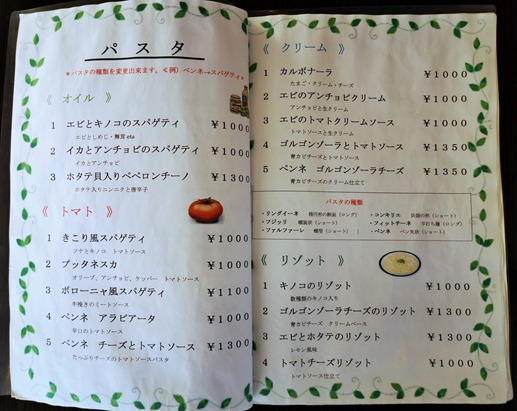 パスタ
*パスタの種類を変更出来ます。≪例）ペンネ→スパゲティ*
《 オイル 》
1 エビとキノコのスパゲティ ￥1000
エビとしめじ・舞茸 eta
2 イカとアンチョビのスパゲティ ￥1000
イカとアンチョビ
3 ホタテ貝入りペペロンチーノ ￥1300
ホタテ入りニンニクと唐辛子
《 トマト 》
1 きこり風スパゲティ ￥1000
ツナとキノコ トマトソース
2 プッタネスカ ￥1000
オリーブ、アンチョビ、ケッパー トマトソース
3 ボローニャ風スパゲティ ￥1100
牛挽きのミートソース
4 ペンネ アラビアータ ￥1000
辛口のトマトソース
5 ペンネ チーズとトマトソース ￥1300
たっぷりチーズのトマトソースパスタ
《 クリーム 》
1 カルボナーラ ￥1000
たまご・クリーム・チーズ
2 エビのアンチョビクリーム ￥1000
アンチョビと生クリーム
3 エビのトマトクリームソース ￥1000
トマトソースと生クリーム
4 ゴルゴンゾーラとトマトソース ￥1350
青カビチーズとトマトソース
5 ペンネ ゴルゴンゾーラチーズ ￥1350
青カビチーズのクリーム仕立て
パスタの種類
・リングイーネ 楕円形の断面（ロング） ・コンキリエ 貝殻の形（ショート）
・フジッリ 螺旋状（ショート） ・フィットチーネ 平打ち麺（ロング）
・ファルファーレ 蝶型（ショート） ・ペンネ ペン先状（ショート）
《 リゾット 》
1 キノコのリゾット ￥1000
数種類のキノコ入り
2 ゴルゴンゾーラチーズのリゾット ￥1300
青カビチーズ クリームベース
3 エビとホタテのリゾット ￥1300
レモン風味
4 トマトチーズリゾット ￥1000
トマトソース仕立て